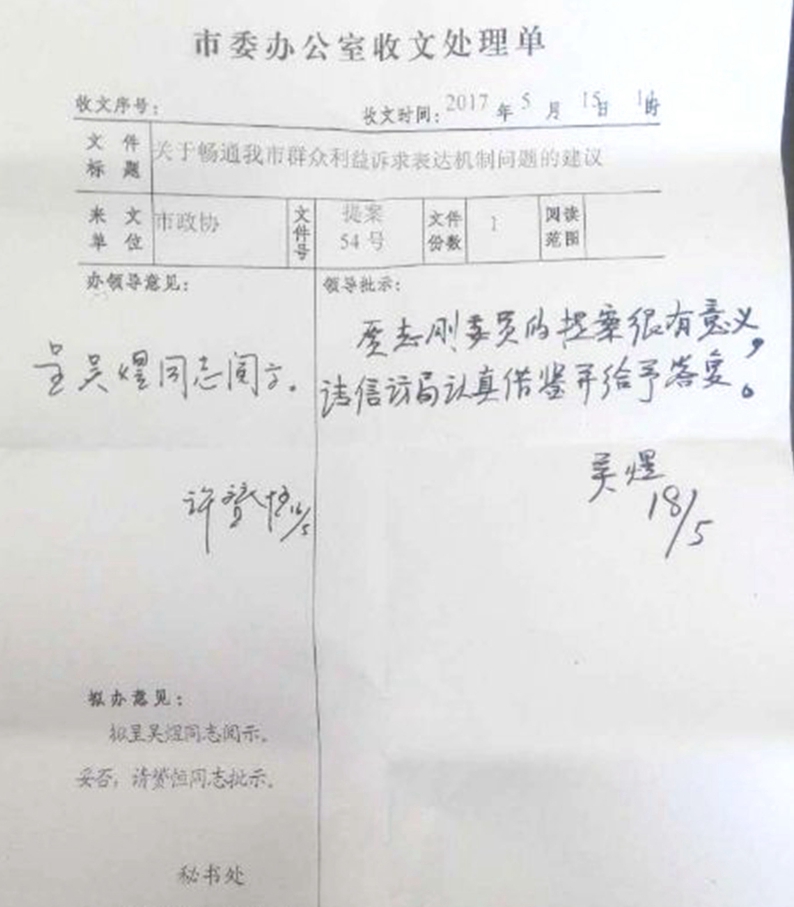 市委办公室收文处理单
收文序号：
收文时间：2017 年 5 月 15日 1时
文件标题
关于畅通我市群众利益诉求表达机制问题的建议
来文单位
市政协
文件号
提案54号
文件份数
1
阅读范围
办领导意见：
呈吴煜同志阅示。
许赟恒 16/5
领导批示：
贾志刚委员的提案很有意义，
请信访局认真借鉴并给予答复。
吴煜
18/5
拟办意见：
拟呈吴煜同志阅示。
妥否，请赟恒同志批示。
秘书处